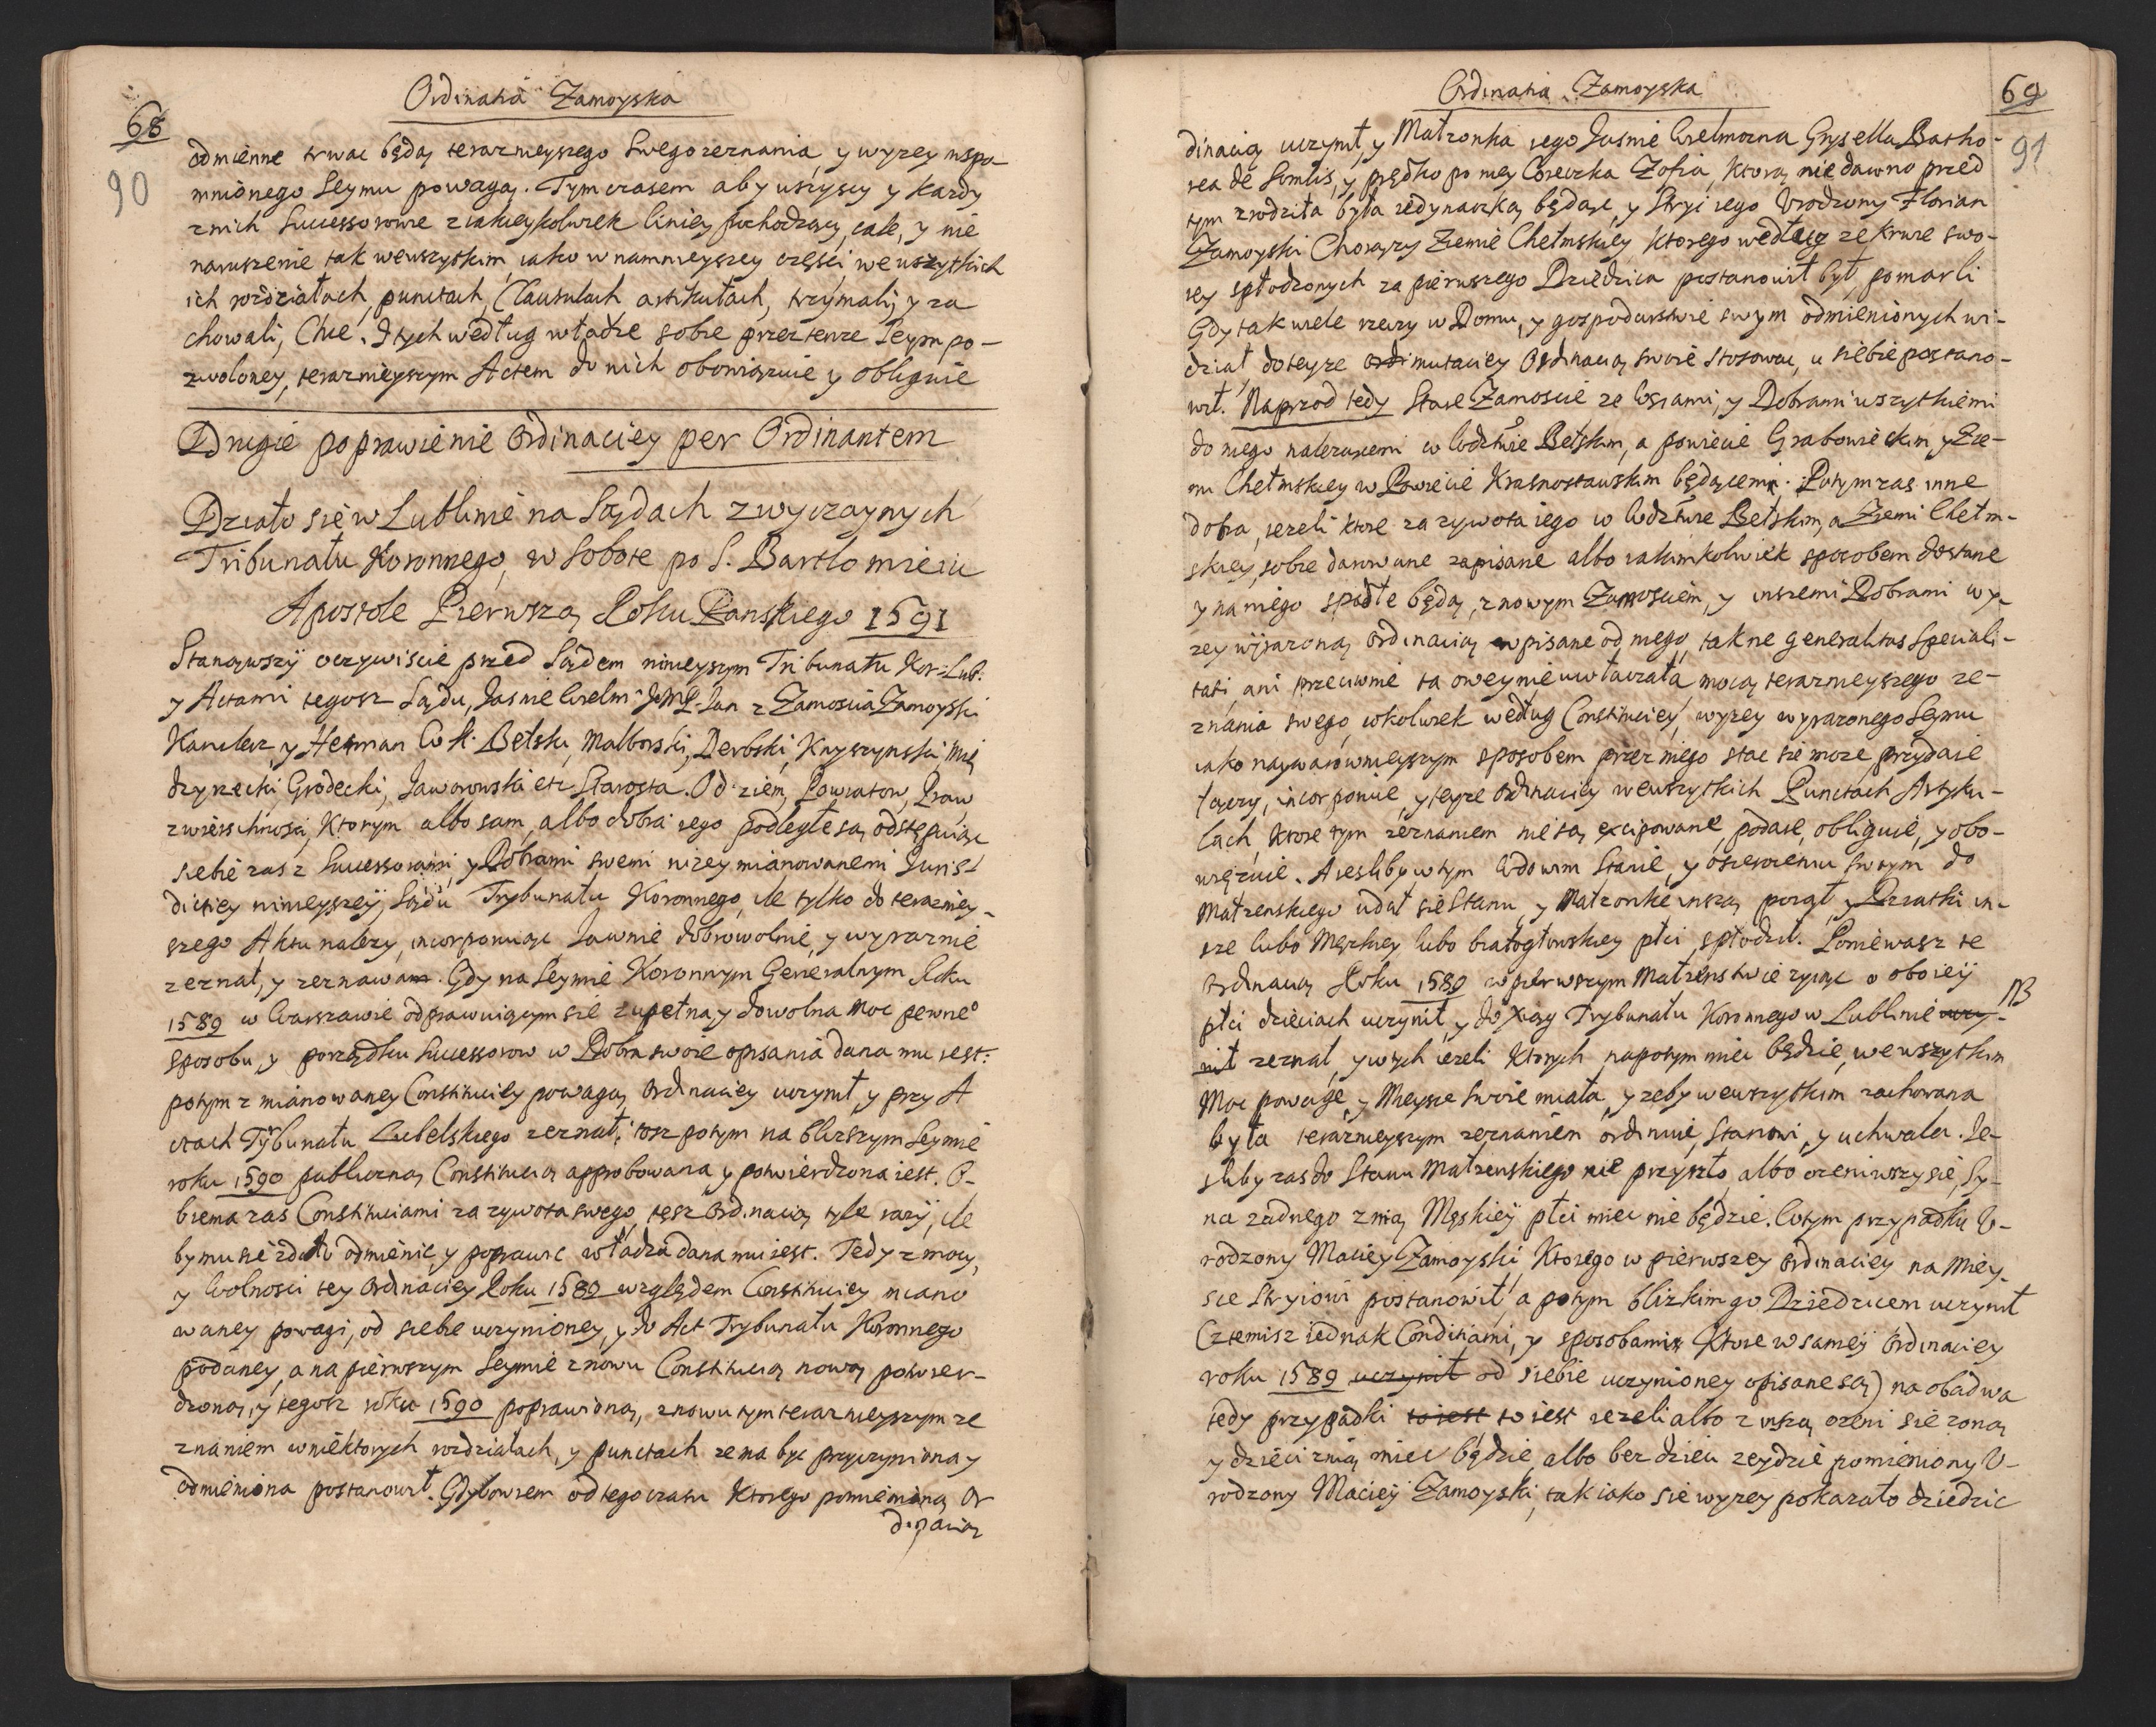 Ordinatia Zamoyska
68
90
odmienne trwac będą terazneyszego Swego zeznania, y wyzey wspo-
mnionego Seymu powagą. Tym czasem aby wszyscy y kazdy
z nich Successorowie z iakieykolwiek liniey pochodzący, cale, y nie
naruszenie tak we wszytkim iako w namnieyszey części we wszytkich
ich rozdziałach, punctach, Clausulach artikułach, trzymali, y za
chowali, Chce. I tych według władze sobie przez tenze Seym po-
zwoloney, terazneyszym Actem do nich obowiązuie y obliguie
Drugie poprawienie Ordinaciey per Ordinantem
Działo się w Lublinie na Sądach zwyczaynych
Tribunatu Koronnego, w Sobote po S. Bartlomieiu
Apostole Pierwszą Roku Panskiego 1591
Stanąwszy oczywiscie przed Sądem ninieyszym Tribunatu Kor: Lub:
y Actami tegosz Sądu, Jasnie Wielm: JMP. Jan z Zamoscia Zamoyski
Kanclerz, y Hetman W. K. Belski, Malborski, Derbski, Knyszynski, Mię
dzyrzecki, Grodecki, Jaworowski etc Starosta. Od ziem, Powiatow, Praw
zwierschnosci, Ktorym albo sam, albo dobra iego podległe są, odstępuiąc
siebie zas z Successorami, y Dobrami swemi nizey mianowanemi Juris-
dictiey ninieyszey, Sądu Trybunału Koronnego, ile tylko do terazniey-
szego Aktu nalezy, incorporuiąc Jawnie dobrowolnie, y wyraznie
zeznał, y zeznawa. Gdy na Seymie Koronnym Generalnym Roku
1589 w Warszawie odprawuiącym się zupełna y dowolna Moc pewne°
sposobu, y porządku Successorow w Dobra swoie opisania dana mu iest:
potym z mianowaney Constituciey powagą Ordinaciey uczynił, y przy A
ctach Trybunatu Lubelskiego zeznał, tosz potym na blizszym Seymie
roku 1590 publiczną Constitucią approbowana y potwierdzona iest. O-
biema zas Constituciami za zywota swego, tęsz Ordinacią tyle razy, ile
by mu się zdało odmienic, y poprawic władza dana mu iest. Tedy z mocy,
y Wolnosci tey Ordinaciey Roku 1589 względem Constituciey miano
waney powagi, od siebie uczynioney, y do Act Trybunatu Koronnego
podaney, a na pierwszym Seymie znowu Constitucią nową potwier-
dzoną, y tegosz roku 1590 poprawioną, znowu tym terazneyszym ze
znaniem w niektorych rozdziałach, y punctach ze ma byc przyczyniona y
odmieniona postanowił. Gdybowiem od tego czasu Ktorego pomienioną Or
dinacią
Ordinatia Zamoyska
69
91
dinacią uczynił, y Matzonka iego Jasnie Wielmozna Grysella Batho-
rea de Somlis, y prędko po niey Coreczka Zofia, Ktorą niedawno przed
tym zrodziła była iedynaczką będąc, y Stryi iego Urodzony Florian
Zamoyski Chorązy Ziemie Chełmskiey, Ktorego według ze krwie swo-
iey spłodzonych za pierwszego Dziedzica postanowił był, pomarli
Gdy tak wiele rzeczy w Domu, y gospodarstwie swym odmienionych wi-
dział do teyze mutaciey Ordinacią swoie stosowac, u siebie postano-
wił. Naprzod tedy Stare Zamoscie ze Wsiami, y Dobrami wszytkiemi
do niego nalezącemi w Wodztwie Bełskim, a powiecie Grabowieckim y Zie-
mi Chełmskiey w Powiecie Krasnostawskim będącemi. Potym zas inne
dobra, iezeli ktore za zywota iego w Wodztwie Bełskim, a Ziemi Chełm-
skiey, sobie darowane zapisane albo iakimkolwiek sposobem dostane
y na niego spadłe będą, z nowym Zamosciem, y inszemi Dobrami wy-
zey wyrazoną Ordinacią wpisane od niego, tak ne generalitas Speciali-
tati, ani przeciwnie ta owey nie uwłaczała mocą terazneyszego ze-
znania swego, wkolwiek według Constituciey, wyzey wyrazonego Seymu
iako naywarownieyszym sposobem przez niego stac się moze przydaie
łączy, incorporuie, y teyze Ordinaciey we wszytkich Punctach Artyku-
łach, ktore tym zeznaniem nie są excipowane, podaie, obliguie, y obo-
wiązuie. A iesliby w tym Wdowim Stanie, y osieroceniu swoym do
Matzenskiego udał się Stanu, y Matzonke inszą poiął, y Dziatki in-
sze lubo Męzkiey lubo białogłowskiey płci spłodził. Poniewasz te
Ordinacią Roku 1589 w pierwszym Matzenstwie zyiąc o oboiey
płci dzieciach uczynił, y do Xiąg Trybunatu Koronnego w Lublinie uczy- NB
nił zeznał, y w tych iezeli Ktorych napotym miec będzie, we wszytkim
Moc powagę, y Mieysce swoie miała, y zeby we wszytkim zachowana
była terazneyszym zeznaniem ordinuie, Stanowi, y uchwala. Ie-
sliby zas do Stanu Matzenskiego nie przyszło, albo ozeniwszy się, Sy-
na zadnego z nią Męskiey płci miec nie będzie. W tym przypadku U-
rodzony Maciey Zamoyski, Ktorego w pierwszey Ordinaciey na Miey-
sce Stryiowi postanowił, a potym blizkim go Dziedzicem uczynił
(z temisz iednak Conditiami, y sposobami Ktore w samey Ordinaciey
roku 1589 uczynił od siebie uczynioney opisane są) na obadwa
tedy przypadki to iest to iest iezeli albo z inszą ozeni się zoną
y dzieci z nią miec będzie, albo bez dzieci zeydzie pomieniony U-
rodzony Maciey Zamoyski, tak iako się wyzey pokazało dziedzic